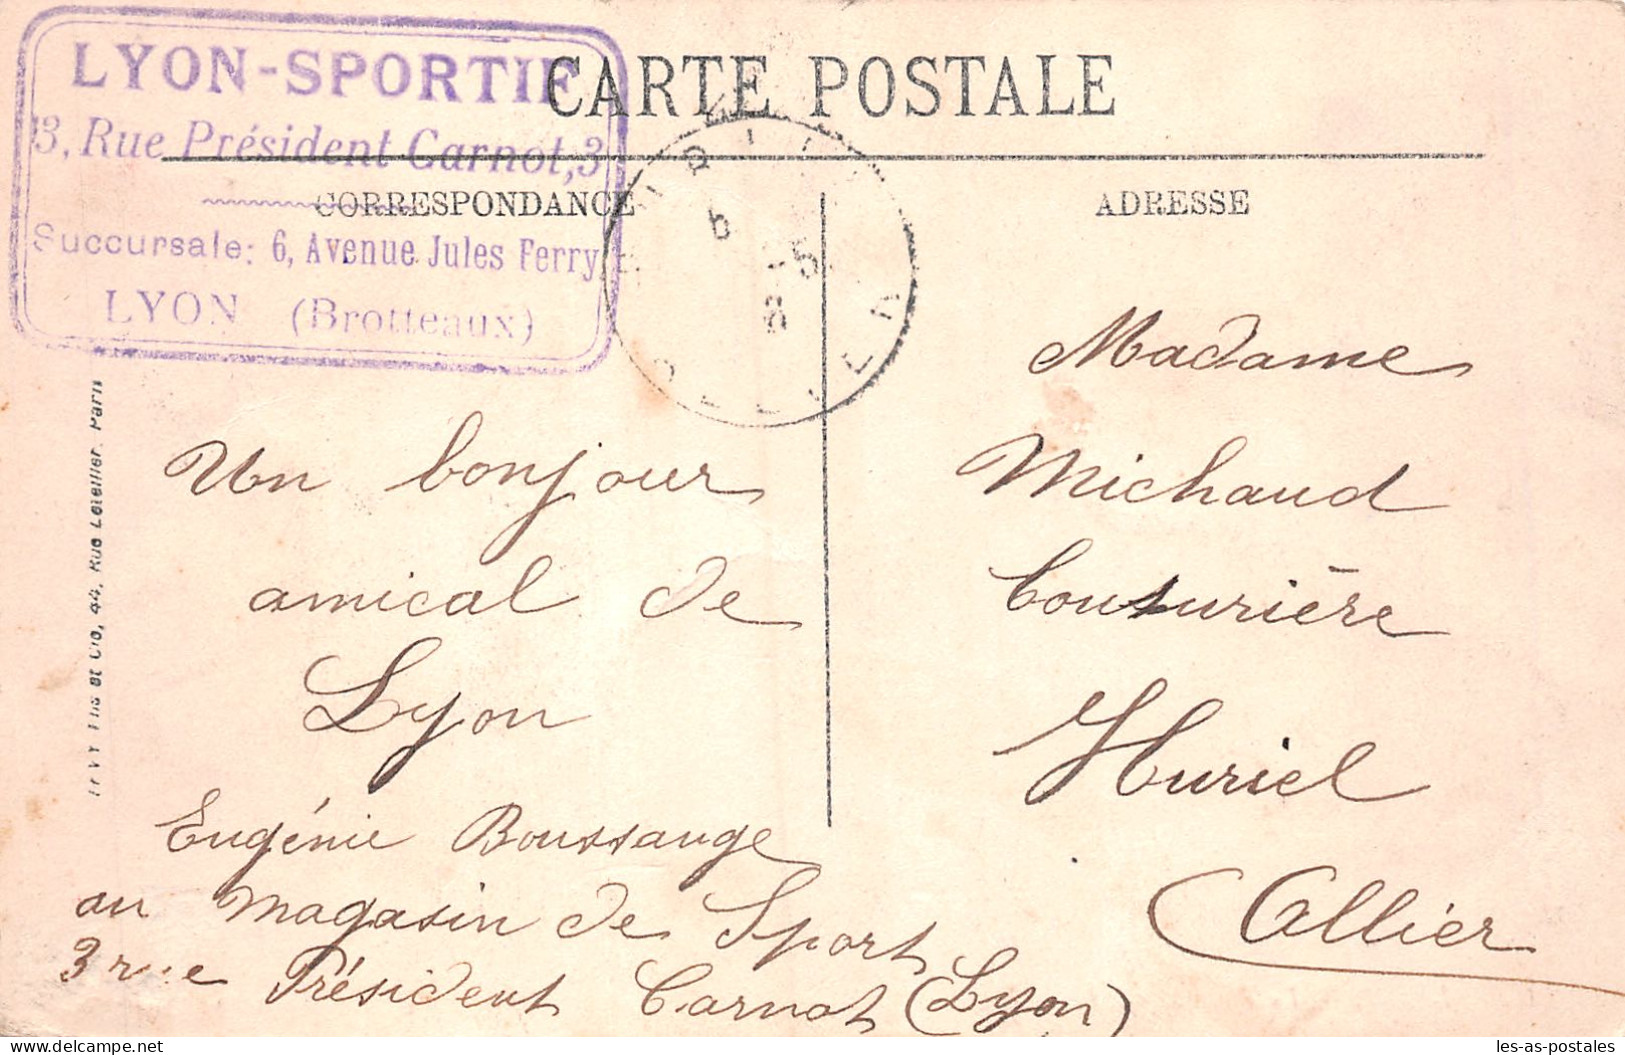 LYON-SPORTIF
3, Rue Président Carnot, 3
Succursale: 6, Avenue Jules Ferry
LYON (Brotteaux)
CARTE POSTALE
CORRESPONDANCE
ADRESSE
LEVY Fils et Cie, 44, Rue Letellier, Paris
Un bonjour
amical de
Lyon
Eugénie Boussange
au magasin de Sport
3 rue Président Carnot (Lyon)
Madame
Michaud
Couturière
Huriel
Allier
les-as-postales
www.delcampe.net